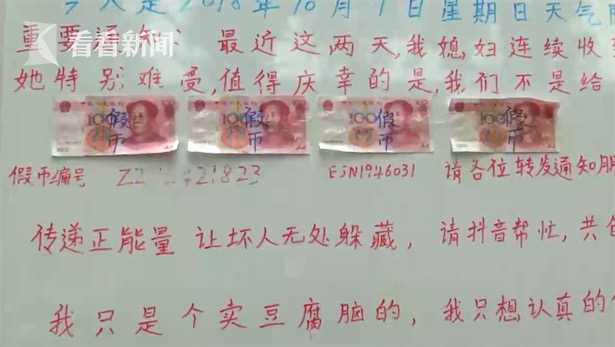 今天是2018年10月7日星期日天气
看看新闻
重要通知 最近这两天,我媳妇连续收
她特别难受,值得庆幸的是,我们不是给
100 假币 100 假币 100 假币 100 假币
假币编号 ESN1946031 请各位转发通知
传递正能量 让坏人无处躲藏, 请抖音帮忙,共
我只是个卖豆腐脑的, 我只想认真的